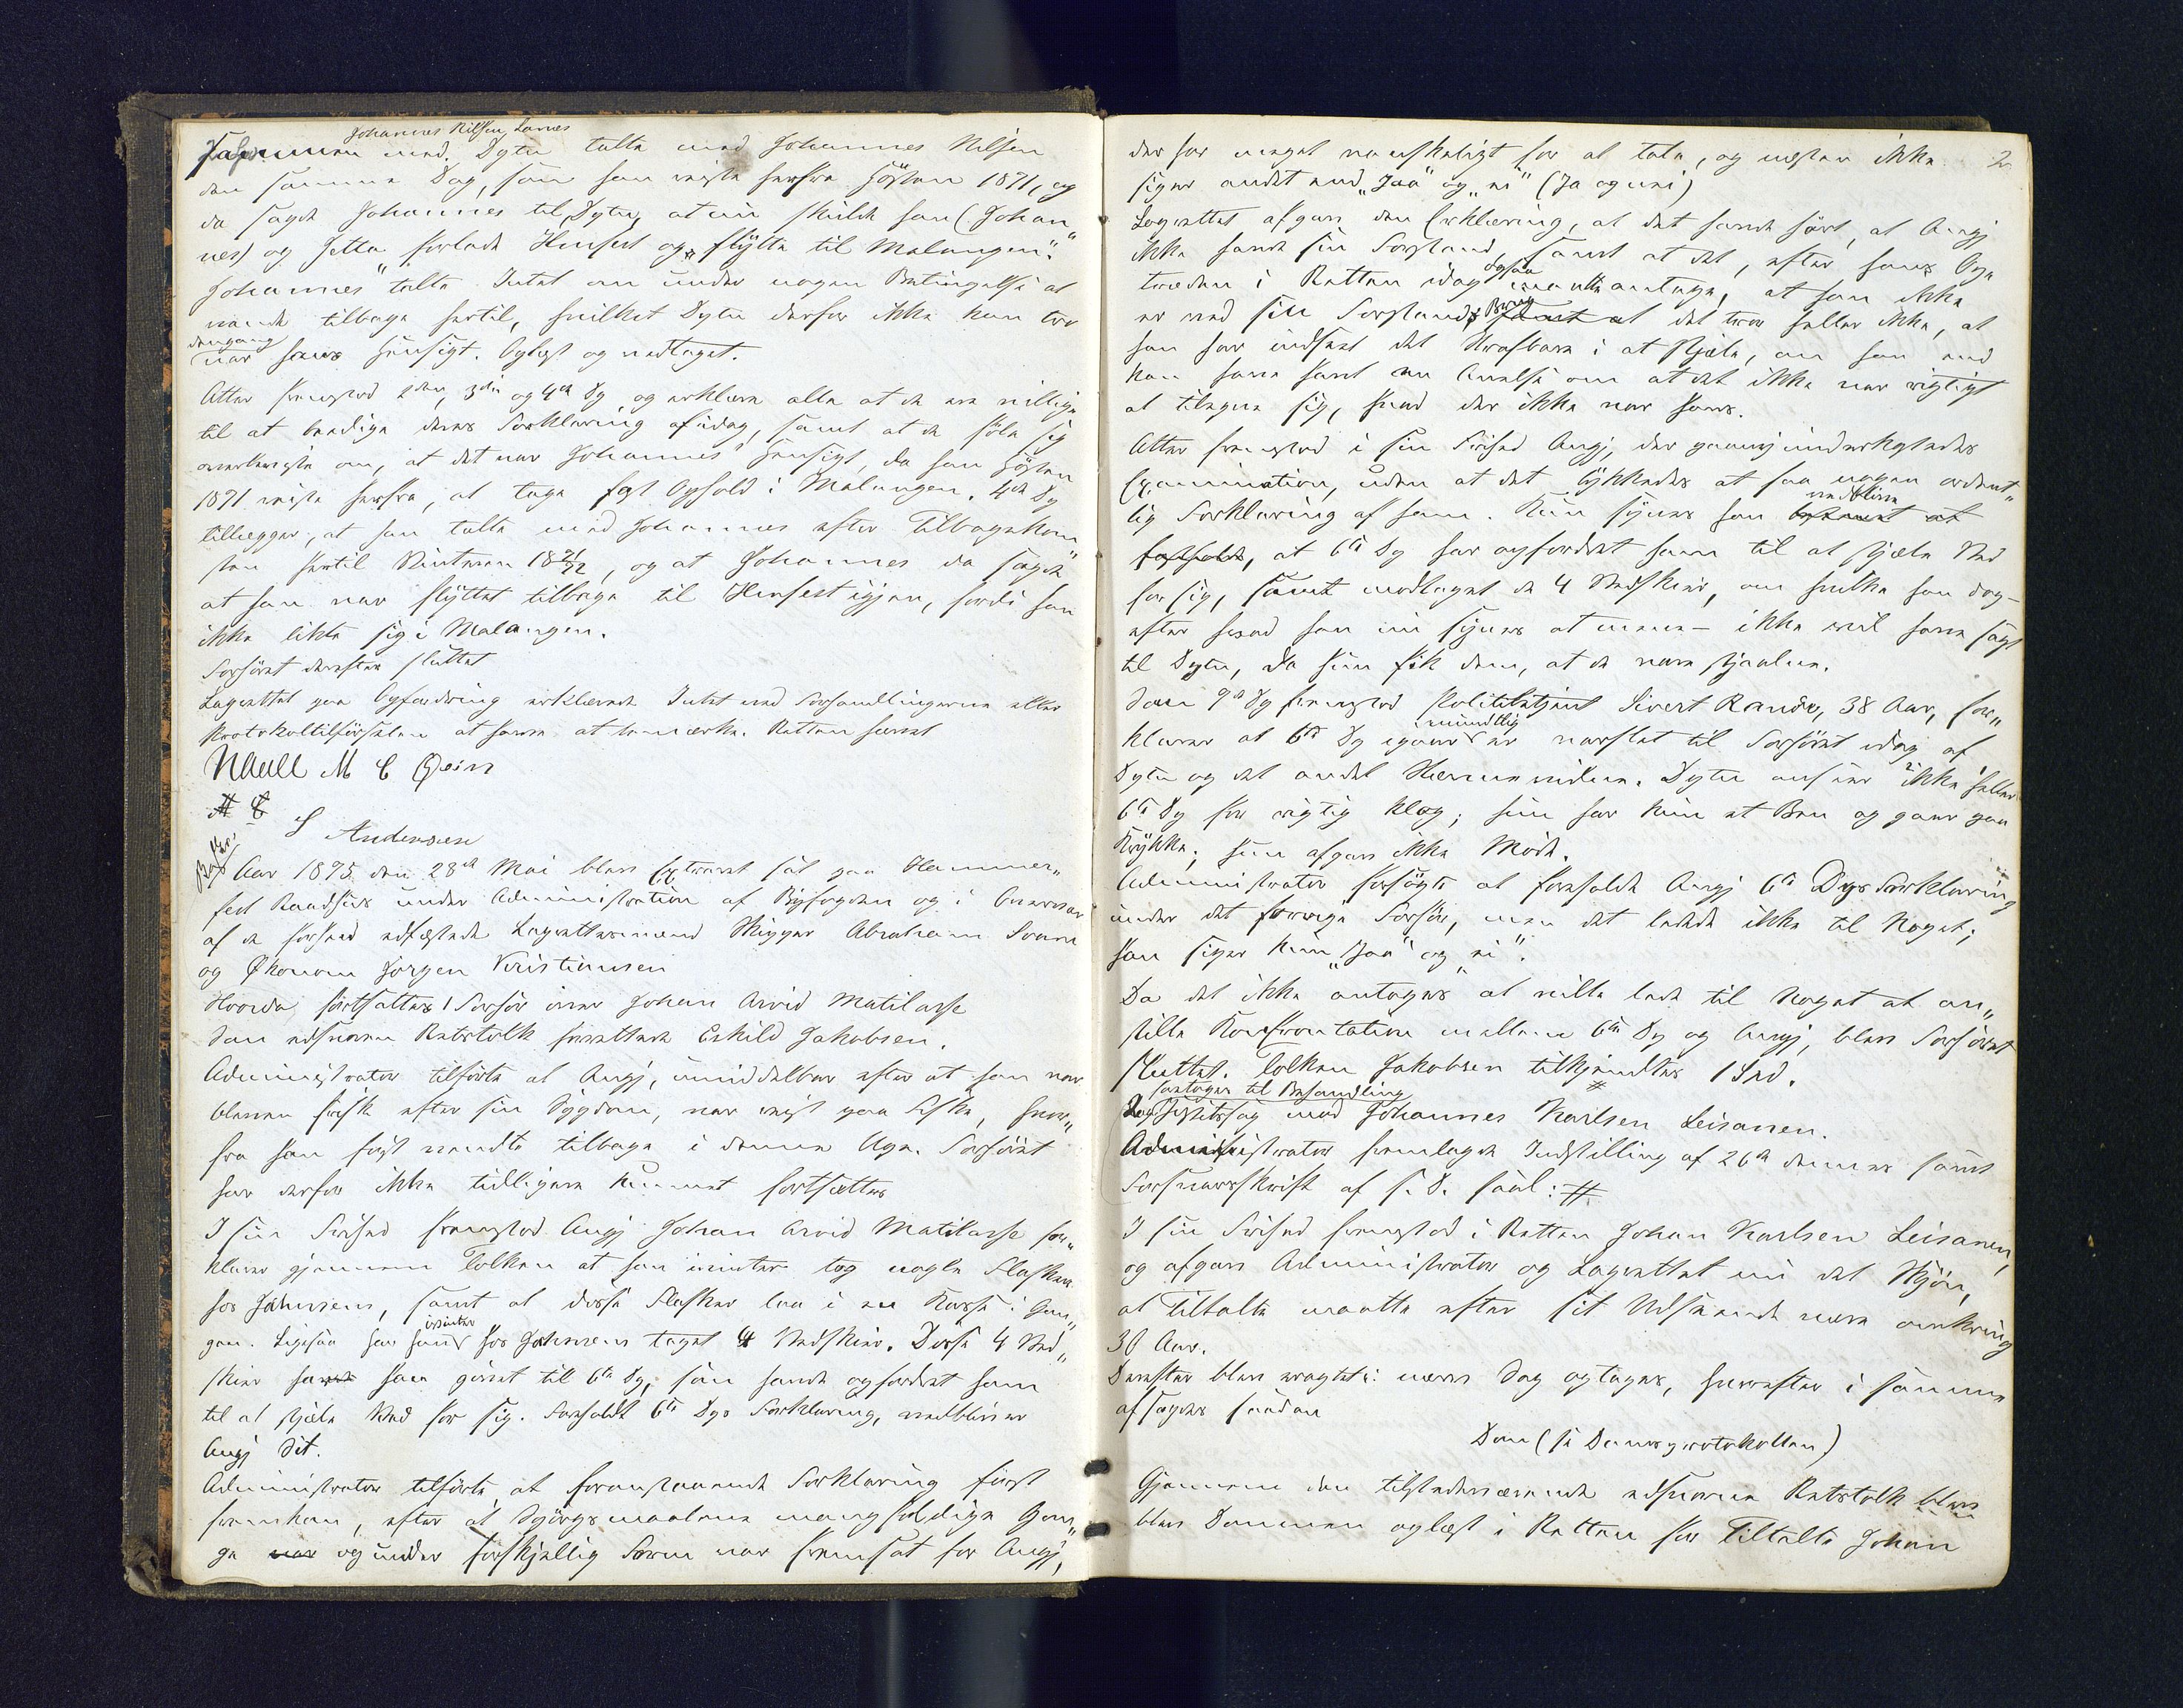 Johannes Nilsen Lanes
sammen med. Dytn talte med Johannes Nilsen
den samme Dag, som han reiste herfra Høsten 1871, og
da sagde Johannes til Dytn, at nu skulde han (Johan„
nes) og Jetta „forlade Hmfest og flytte til Malangen“.
Johannes talte Intet om under nogen Betingelse at
vende tilbage hertil, hvilket Dytn derfor ikke kan tro
dengang
var hans Hensigt. Oplæst og vedtaget.
Atter fremstod 2den, 3die og 4de Dg og erklære alle at de ere villige
til at beedige deres Forklaring afidag, samt at de føle sig
overbeviste om, at det var Johannes' Hensigt, da han Høsten
1871 reiste herfra, at tage fast Ophold i Malangen. 4de Dg
tillægger, at han talte med Johannes efter Tilbagekom„
sten hertil Vinteren 1871/72, og at Johannes da sagde
at han var flyttet tilbage til Hmfest igjen, fordi han
ikke likte sig i Malangen.
Forhøret derefter sluttet
Lagrettet paa Opfordring erklærede Intet ved Forhandlingerne eller
Protokoltilførselen at have at bemærke. Retten hævet
M C Qvien
M C
S Andersen
Aar 1875 den 28de Mai blev Extraret sat paa Hammer„
fest Raadhus under Administration af Byfogden og i Overvær
af de forhen edfæstede Lagrettesmænd Skipper Abraham Svane
og Økonom Jørgen Kristiansen
Hvorda, fortsattes Forhør over Johan Arvid Matilasse
Den edsvorne Retstolk forrettede Eskild Jakobsen.
Administrator tilførte at Angj, umiddelbar efter at han var
bleven frisk efter sin Sygdom, var reist paa Fiske, hvor„
fra han først vendte tilbage i denne Uge. Forhøret
har derfor ikke tidligere kunnet fortsættes
I sin Frihed fremstod Angj Johan Arvid Matilasse for„
klarer gjennem Tolken at han ivinter tog nogle Flasker
hos Jahnsens, samt at disse Flasker laa i en Kasse i Gan„
ivinter
gen. Ligesaa har han hos Jahnsens taget 4 Vedskier. Disse 4 Ved„
skier havde han givet til 6te Dg, hun havde opfordret ham
til at stjæle Ved for sig. Foreholdt 6te Dgs Forklaring, vedbliver
Angj Sit.
Administrator tilførte at foranstaaende Forklaring først
fremkom, efter at Spørgsmaalene mangfoldige Gan„
ge var og under forskjellig Form var fremsat for Angj,
2
der har meget vanskeligt for at tale, og næsten ikke
siger andet end „Jaa“ og „ei“ (Ja og nei)
Lagrettet afgav den Erklæring, at det havde hørt, at Angj
ikke havde sin Forstand, samt at det, efter hans Op„
ogsaa
træden i Retten idag maatte antage, at han ikke
er ved sin Forstands Brug samt at det tror heller ikke, at
han har indseet det Strafbare i at stjæle, om han end
kan have havt en Anelse om at det ikke var rigtigt
at tilegne sig, hvad der ikke var hans.
Atter fremstod i sin Frihed Angj, der paany underkastedes
Examination, uden at det lykkedes at faa nogen ordent„
vedblive
lig Forklaring af ham. Kun synes han bestemt at
fastholde, at 6te Dg har opfordret ham til at stjæle Ved
for sig, samt modtaget de 4 Vedskier, om hvilke han dog –
efter hvad han nu synes at mene – ikke veed have sagt
til Dytn, da hun fik dem, at de vare stjaalne.
Som 9de Dg fremstod Politibetjent Sivert Rande, 38 Aar, for„
mundtlig
klarer at 6te Dg igaar er varslet til Forhøret idag af
Dytn og det andet Stævnevidne. Dytn anser ikke heller
6te Dg for rigtig klog; hun har kun et Ben og gaar paa
Krykke; hun afgav ikke Møde.
Administrator forsøgte at foreholde Angj 6te Dgs Forklaring
under det forrige Forhør, men det ledede ikke til Noget;
han siger kun „Jaa“ og „ei“.
Da det ikke antages at ville lede til Noget at an„
stille Konfrontation mellem 6te Dg og Angj, blev Forhøret
sluttet. Tolken Jakobsen tilkjendtes 1 Spd.
foretoges til Behandling
Justitssag mod Johannes Karlsen Leisanen.
Administrator fremlagde Indstilling af 26de dennes samt
Forsvarsskrift af s. D. saal: #
I sin Frihed fremstod i Retten Johan Karlsen Leisanen,
og afgav Administrator og Lagrettet nu det Skjøn,
at Tiltalte maatte efter sit Udseende være omkring
30 Aar.
Derefter blev eragtet: næves Sag optages, hvorefter i samme
afsagdes saadan
Dom (se Domsprotokollen)
Gjennem den tilstedeværende edsvorne Retstolk blev
blev Dommen oplæst i Retten for Tiltalte Johan